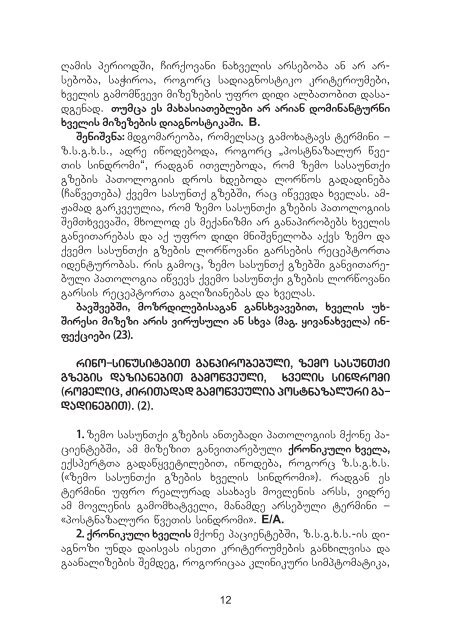 ღამის პერიოდში, ჩირქოვანი ნახველის არსებობა ან არ არ-
სებობა, საჭიროა, როგორც სადიაგნოსტიკო კრიტერიუმები,
ხველის გამომწვევი მიზეზების უფრო დიდი ალბათობით დასა-
დგენად. თუმცა ეს მახასიათებლები არ არიან დომინანტურნი
ხველის მიზეზების დიაგნოსტიკაში. B.
შენიშვნა: მდგომარეობა, რომელსაც გამოხატავს ტერმინი –
ზ.ს.გ.ხ.ს., ადრე იწოდებოდა, როგორც „პოსტნაზალურ წვე-
თის სინდრომი“, რადგან ითვლებოდა, რომ ზემო სასაუნთქი
გზების პათოლოგიის დროს ხდებოდა ლორწოს გადადინება
(ჩაწვეთება) ქვემო სასუნთქ გზებში, რაც იწვევდა ხველას. ამ-
ჟამად გარკვეულია, რომ ზემო სასუნთქი გზების პათოლოგიის
შემთხვევაში, მხოლოდ ეს მექანიზმი არ განაპირობებს ხველის
განვითარებას და აქ უფრო დიდი მნიშვნელობა აქვს ზემო და
ქვემო სასუნთქი გზების ლორწოვანი გარსების რეცეპტორთა
იდენტურობას. რის გამოც, ზემო სასუნთქ გზებში განვითარე-
ბული პათოლოგია იწვევს ქვემო სასუნთქი გზების ლორწოვანი
გარსის რეცეპტორთა გაღიზიანებას და ხველას.
ბავშვებში, მოზრდილებისაგან განსხვავებით, ხველის უხ-
შირესი მიზეზი არის ვირუსული ან სხვა (მაგ. ყივანახველა) ინ-
ფექციები (23).
რინო-სინუსიტებით განპირობებული, ზემო სასუნთქი
გზების დაზიანებით გამოწვეული, ხველის სინდრომი
(რომელიც, ძირითადად გამოწვეულია პოსტნაზალური გა-
დადინებით). (2).
1. ზემო სასუნთქი გზების ანთებადი პათოლოგიის მქონე პა-
ციენტებში, ამ მიზეზით განვითარებული ქრონიკული ხველა,
ექსპერტთა გადაწყვეტილებით, იწოდება, როგორც ზ.ს.გ.ხ.ს.
(«ზემო სასუნთქი გზების ხველის სინდრომი»). რადგან ეს
ტერმინი უფრო რეალურად ასახავს მოვლენის არსს, ვიდრე
ამ მოვლენის გამომხატველი, მანამდე არსებული ტერმინი –
«პოსტნაზალური წვეთის სინდრომი». E/A.
2. ქრონიკული ხველის მქონე პაციენტებში, ზ.ს.გ.ხ.ს.-ის დი-
აგნოზი უნდა დაისვას ისეთი კრიტერიუმების განხილვისა და
გაანალიზების შემდეგ, როგორიცაა კლინიკური სიმპტომატიკა,
12